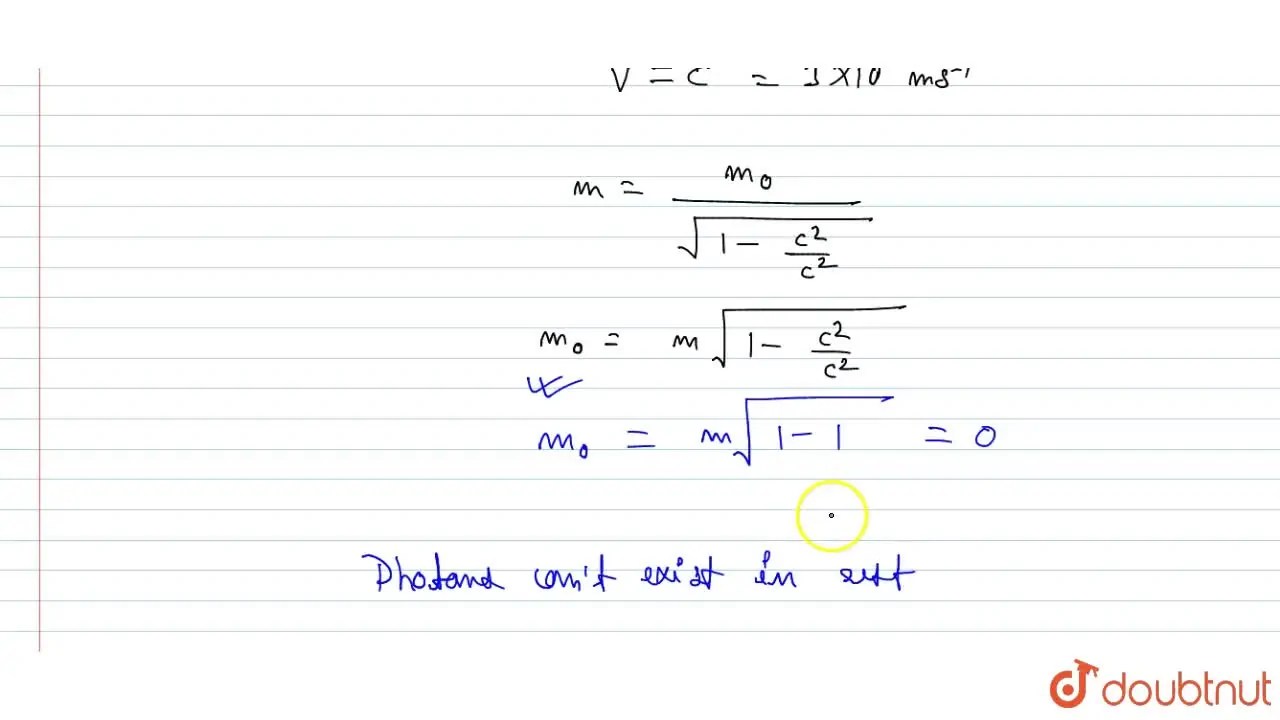 V = C = 3 X 10 ms⁻¹
m = m₀ / √(1 - c²/c²)
m₀ = m √(1 - c²/c²)
m₀ = m √(1 - 1) = 0
can't exist in
doubtnut